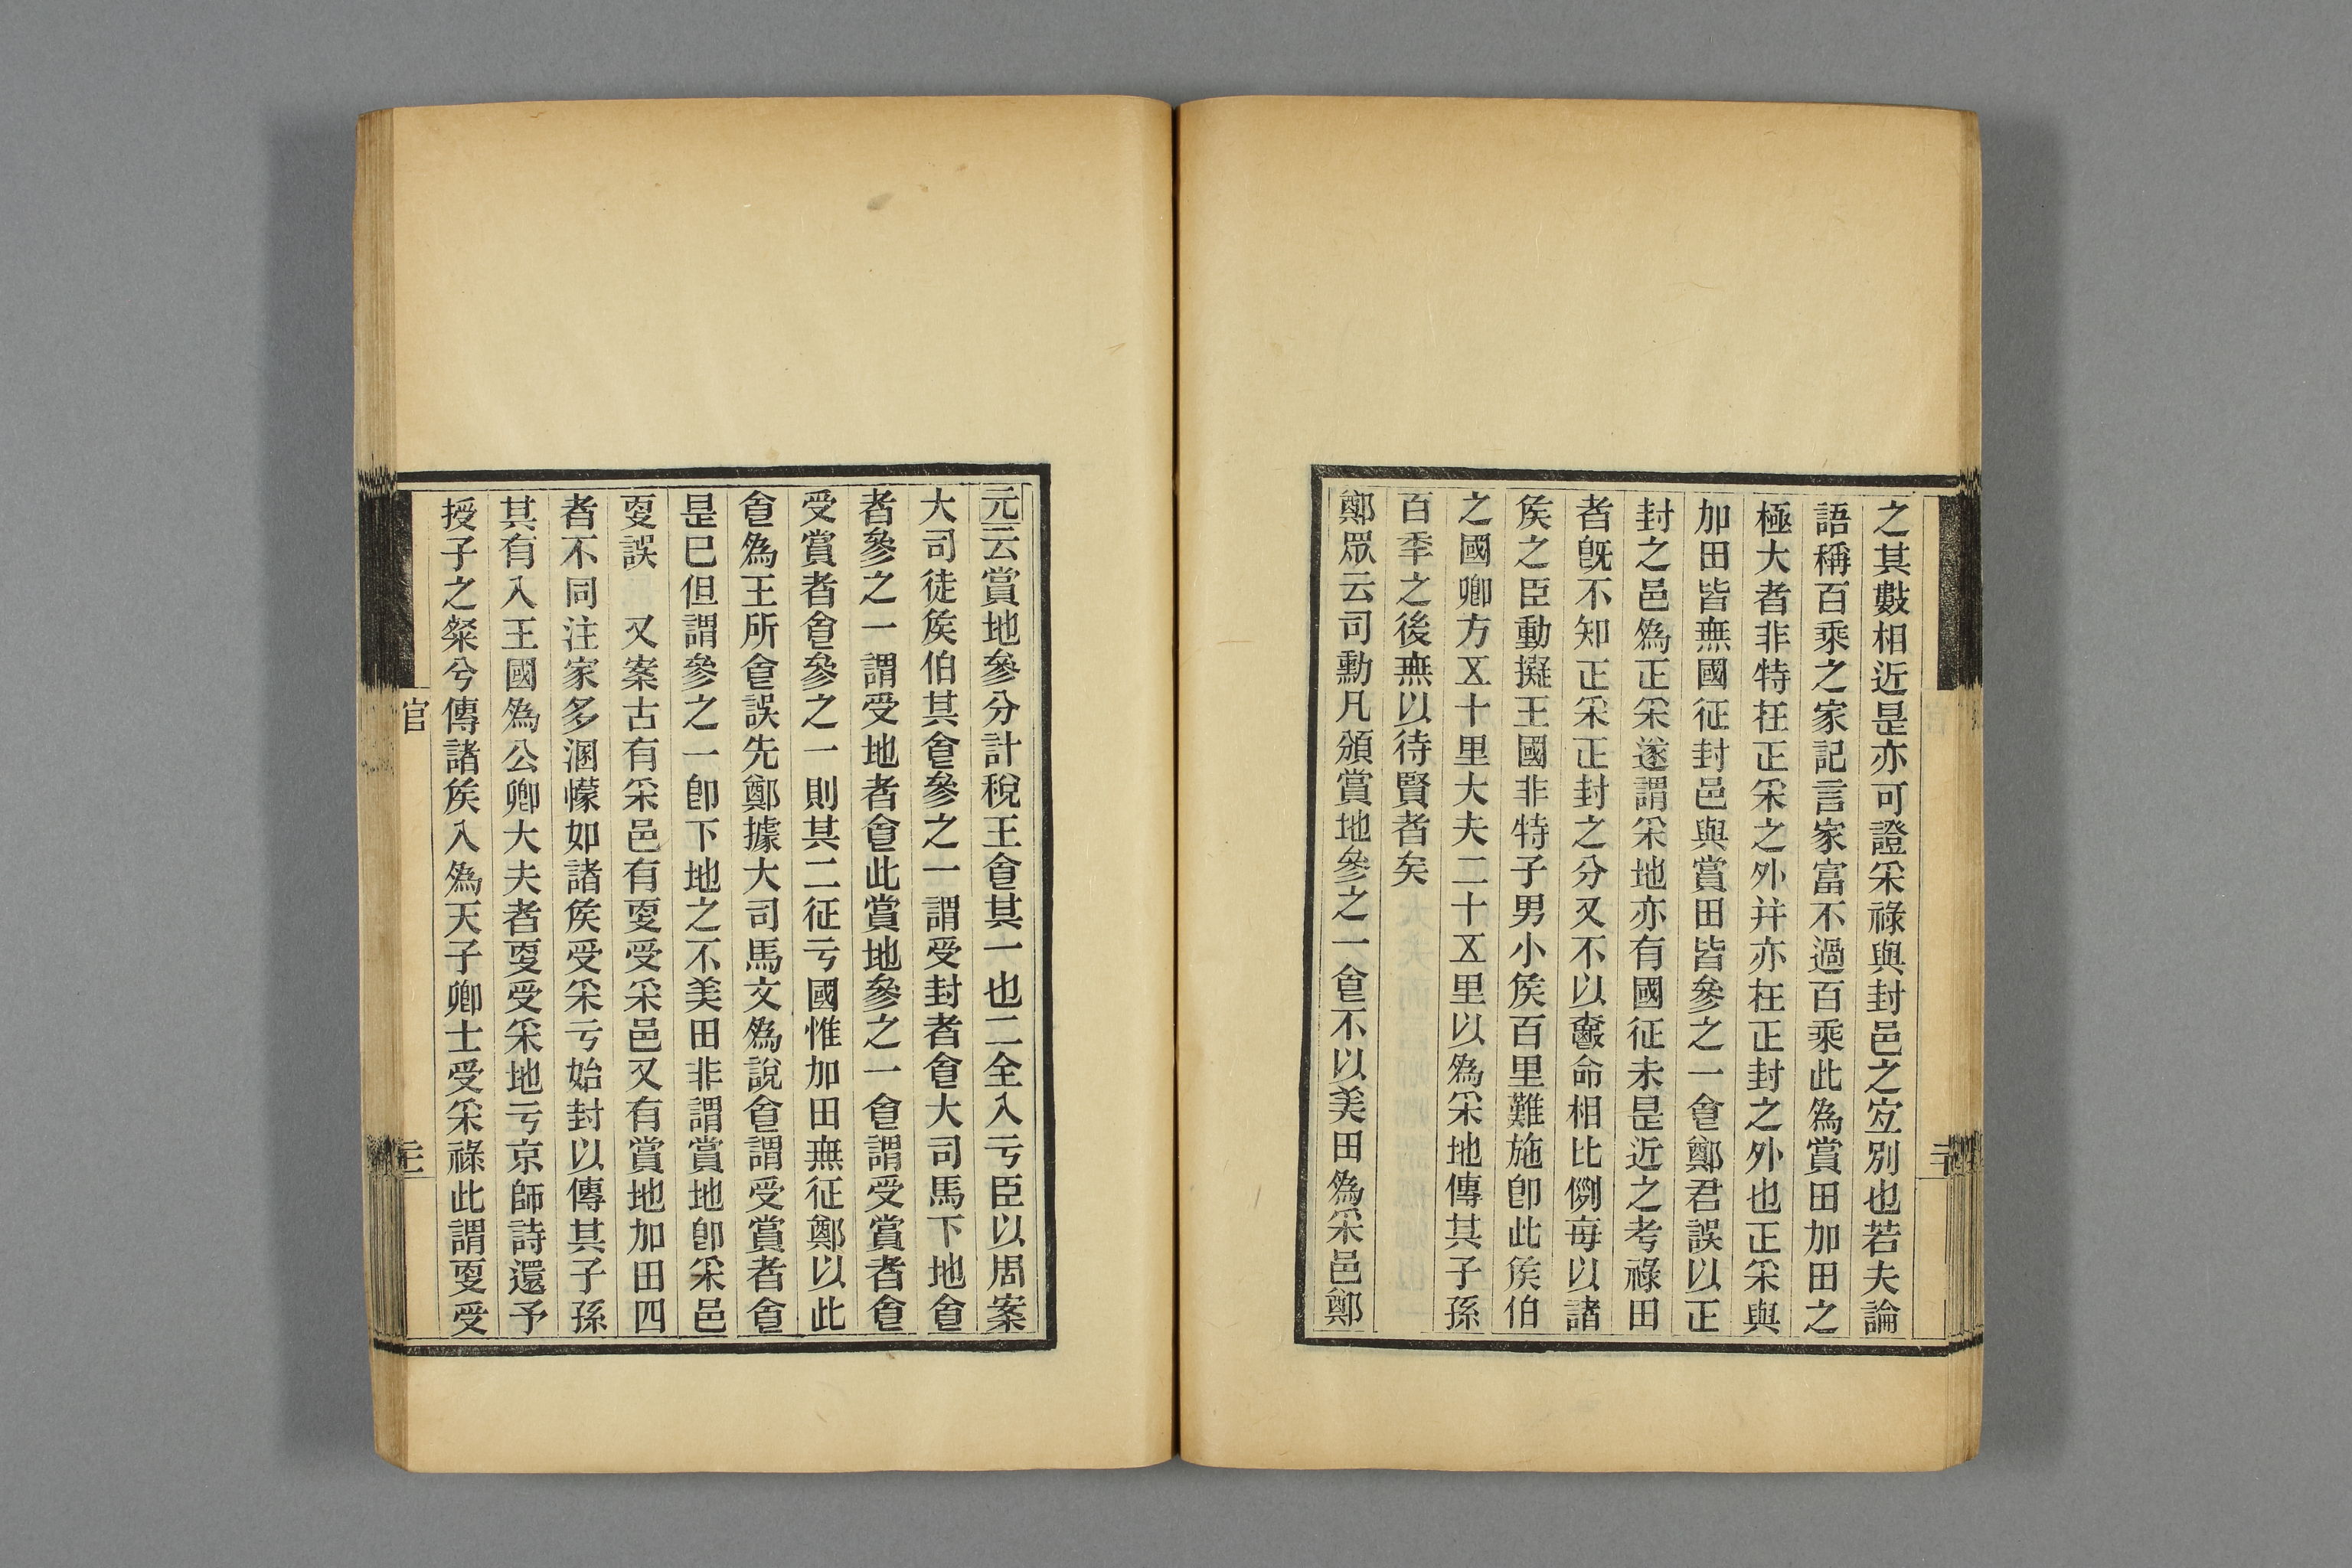 之其數相近是亦可證采祿與封邑之宐別也若夫論
語稱百乘之家記言家富不過百乘此為賞田加田之
極大者非特在正采之外并亦在正封之外也正采與
加田皆無國征封邑與賞田皆參之一食鄭君誤以正
封之邑為正采遂謂采地亦有國征未是近之考祿田
者旣不知正采正封之分又不以爵命相比例每以諸
矦之臣動擬王國非特子男小矦百里難施卽此矦伯
之國卿方五十里大夫二十五里以為采地傳其子孫
百年之後無以待賢者矣
鄭眾云司勳凡頒賞地參之一食不以美田為采邑鄭
元云賞地參分計稅王食其一也二全入亏臣以周案
大司徒矦伯其食參之一謂受封者食大司馬下地食
者參之一謂受地者食此賞地參之一食謂受賞者食
受賞者食參之一則其二征亏國惟加田無征鄭以此
食為王所食誤先鄭據大司馬文為說食謂受賞者食
是巳但謂參之一卽下地之不美田非謂賞地卽采邑
更誤　又案古有采邑有更受采邑又有賞地加田四
者不同注家多溷幪如諸矦受采亏始封以傳其子孫
其有入王國為公卿大夫者更受采地亏京師詩還予
授子之粲兮傳諸矦入為天子卿士受采祿此謂更受
官
三